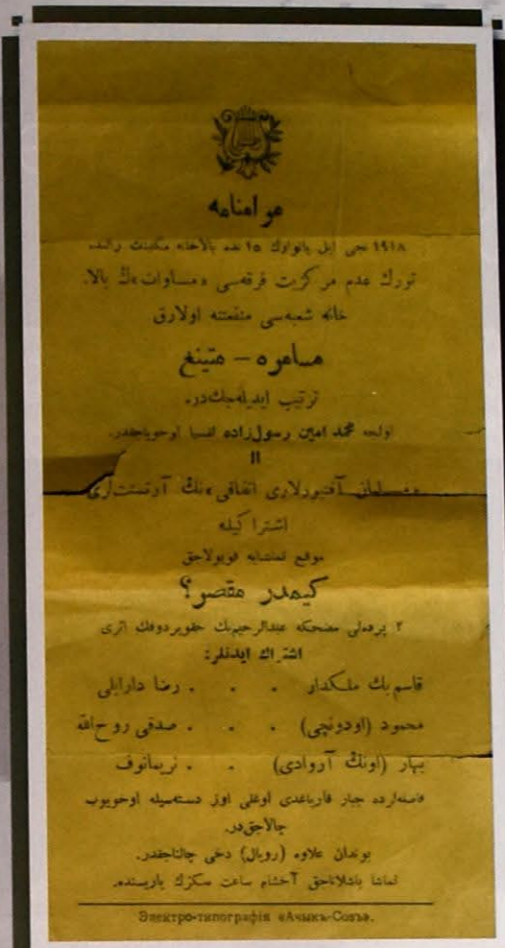 مرامنامه
۱۹۱۸ نجی ایل یانوارڭ ۱۵ نده بالاخانه
تورك عدم مركزیت فرقه‌سی «مساوات»ڭ بالا‌
خانه شعبه‌سی منفعتنه اولارق
مسامره – متینغ
ترتیب ایدیله‌جك‌در.
اولجه محمد امین رسول‌زاده اوخویاجقدر.
II
آقتیورلاری اتفاقی»نڭ آرتیستلری
اشتراكیله
موقع تماشایه قویولاجق
كیمدر مقصر؟
۲ پرده‌لی مضحكه عبدالرحیم‌بك حقویردوفڭ اثری
اشتراك ایدنلر:
قاسم بك ملكدار . . . رضا دارابلی
محمود (اودونچی) . . . صدقی روح‌الله
بهار (اونڭ آروادی) . . نریمانوف
فاصله‌لرده جبار قاریاغدی اوغلی اوز دسته‌سیله اوخویوب
چالاجق‌در.
بوندان علاوه (رویال) دخی چالناجقدر.
تماشا باشلاناجق آخشام ساعت سكزڭ یاریسنده.
Электро-типографія «Ачыкъ-Созъ».